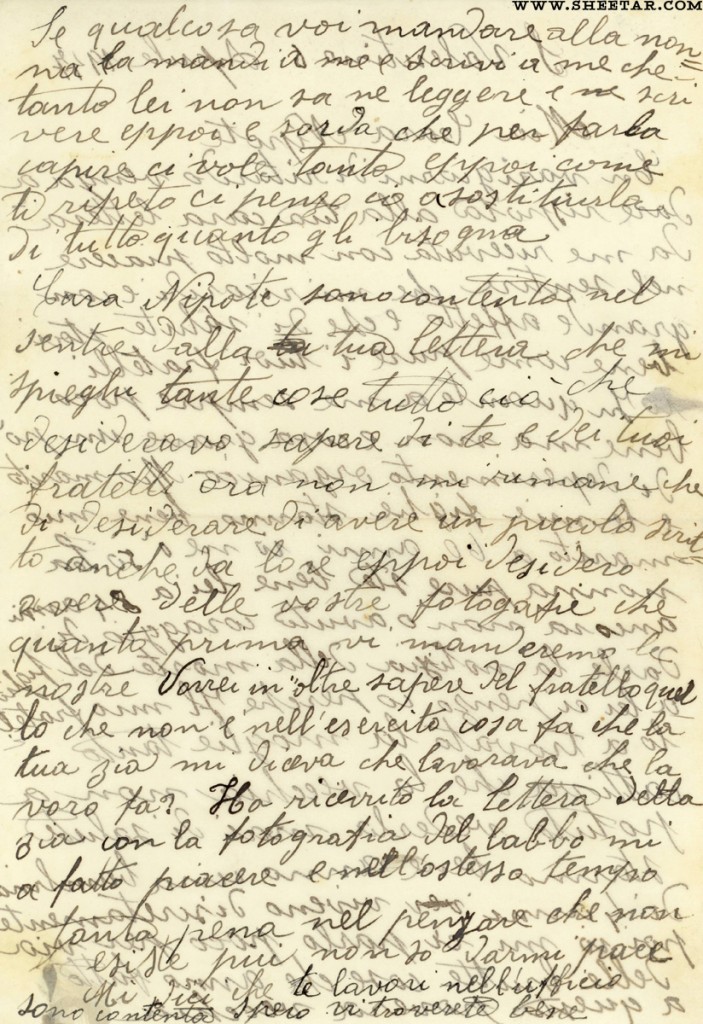 WWW.SHEETAR.COM
Se qualcosa voi mandare alla non
na la mandi a me e scrivi a me che
tanto lei non sa ne leggere e ne scri
vere eppoi e sorda, che per farla
capire ci vole tanto eppoi come
ti ripeto ci penso io a sostituirla
di tutto quanto gli bisogna
Cara Nipote sono contento nel
sentire dalla tua lettera che mi
spieghi tante cose tutto ciò che
desideravo sapere di te e dei tuoi
fratelli ora non mi rimane che
di desiderare di avere un piccolo scrit=
to anche da loro eppoi desidero
avere delle vostre fotografie che
quanto prima vi manderemo le
nostre Vorrei in oltre sapere del fratello quel
lo che non é nell'esercito cosa fà che la
tua zia mi diceva che lavorava che la
voro fa? Ho ricevuto la lettera della
zia con la fotografia del babbo mi
a fatto piacere e nell'ostesso tempo
tanta pena nel penzare che non
esiste piu non so darmi pace
Mi dici che te lavori nell'ufficio
sono contenta spero vi troverete bene